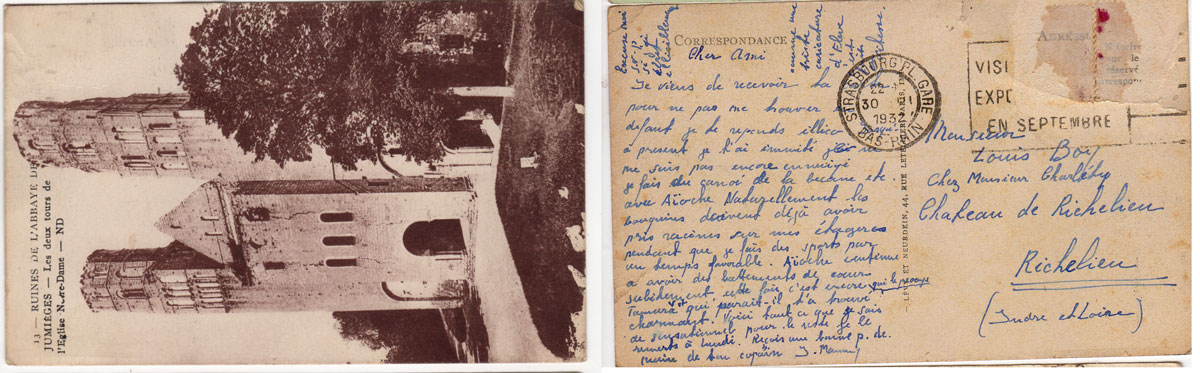 13 — RUINES DE L'ABBAYE DE
JUMIÈGES — Les deux tours de
l'Eglise Notre-Dame — ND
CORRESPONDANCE
ADRESSE
Excuse moi
si je
écrit
comme une
triste
caricature
d'Elève
Cher Ami
Je viens de recevoir ta
pour ne pas me trouver
défaut je te reponds illico
à présent je t'ai immité je ne
me suis pas encore ennuyé
je fais du canoï de la becane etc.
avec Aïoche Naturellement les
bouquins doivent déjà avoir
pris racines sur mes étagères
pendant que je fais des sports par
un temps favorable. Aïoche continue
a avoir des battements de coeur
subitement, cette fois c'est encore
Tamara qui parait-il t'a trouvé
charmant. Voici tout ce que je sais
de sensationnel pour le reste je le
remets à lundi. Reçois une bonne p. de
de ton copain
STRASBOURG PL. GARE
22
30
1932
BAS-RHIN
VISI
EXPO
EN SEPTEMBRE
LEVY ET NEURDEIN, 44, RUE LETELLIER, PARIS
Monsieur
Louis Boy
Chez Monsieur Charléty
Chateau de Richelieu
Richelieu
(Indre et Loire)